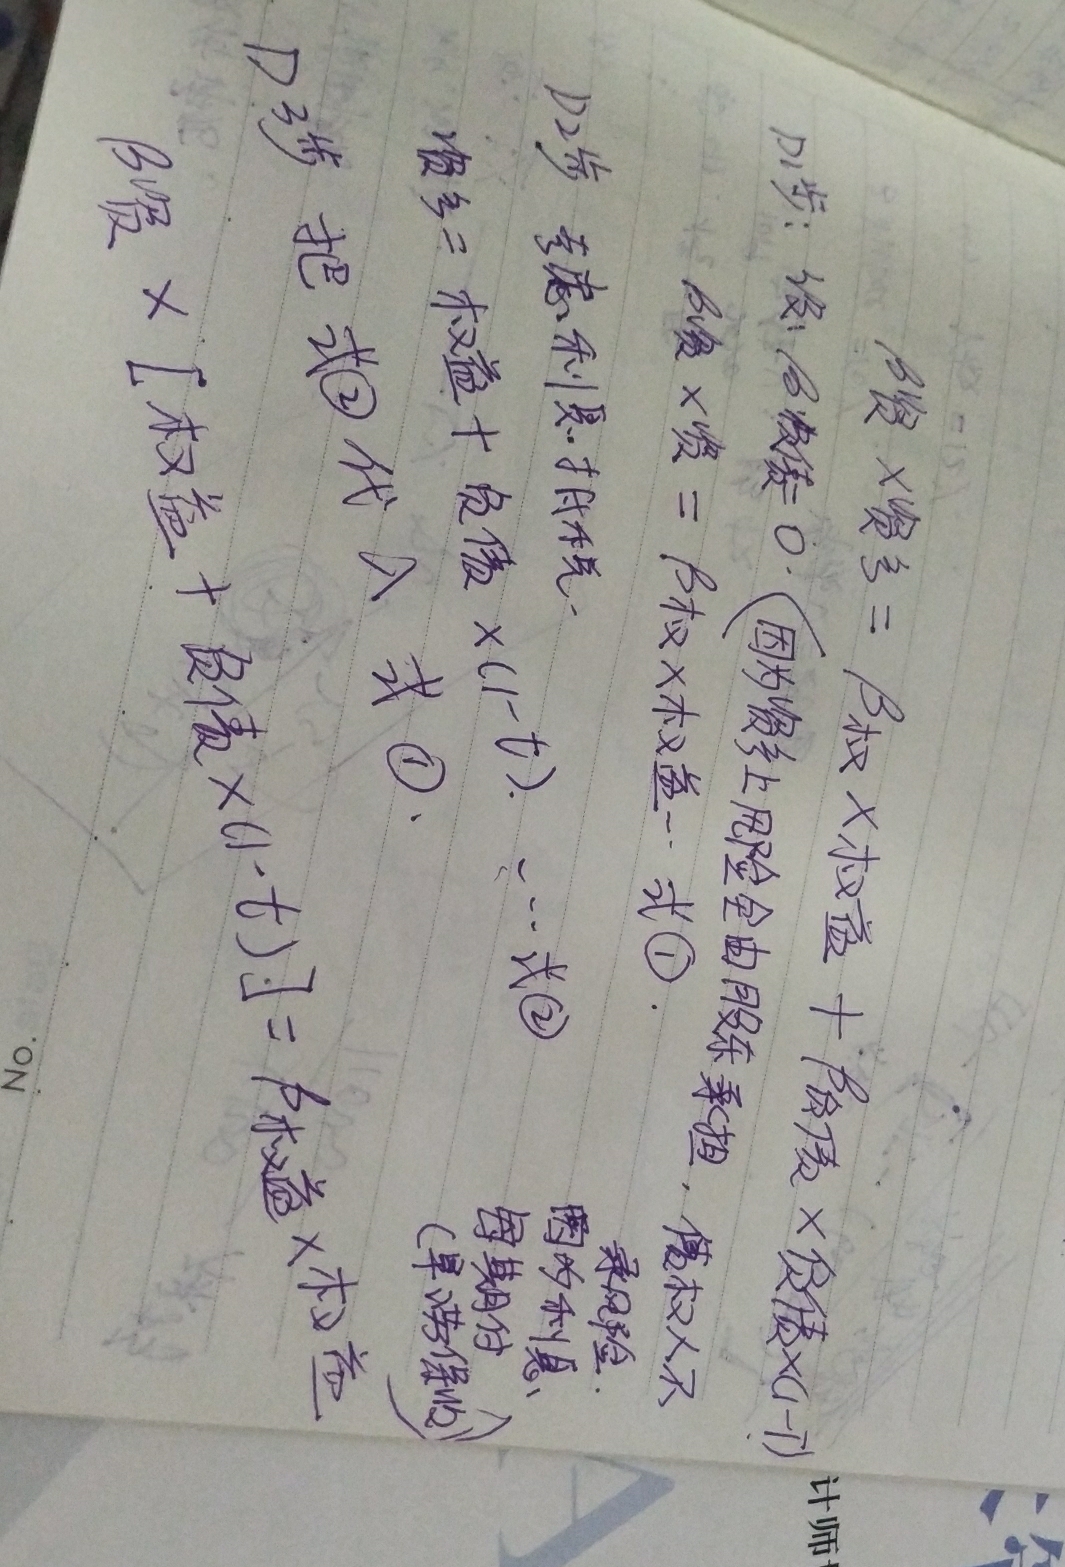 β资×资多 = β权×权益 + β负债×负债×(1-T)
D1步: 设: β负债=0. (因为资多上风险全由股东承担, 债权人不
承风险.
因为利息、
每期付
(旱涝保收))
β资×资 = β权×权益… 式①.
D2步 考虑利息抵税.
资多= 权益+负债×(1-t). …… 式②
D3步 把 式② 代入 式①.
β资 × [权益+负债×(1-t)] = β权益×权益
No.
计师